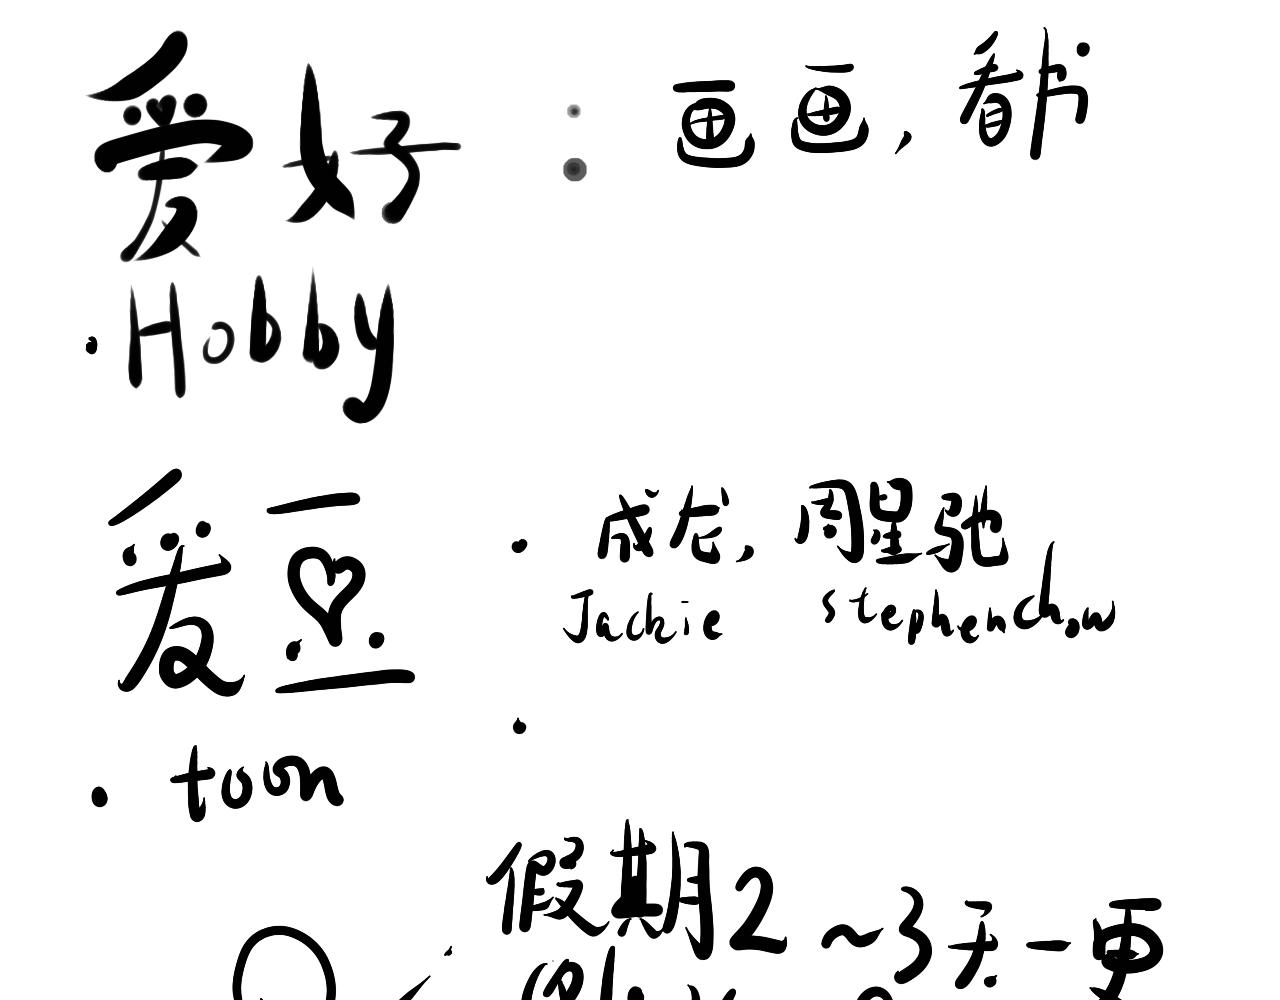 爱好：画画，看书
·Hobby
爱豆·成龙，周星驰
Jackie stephenchow
·toon
假期2~3天一更